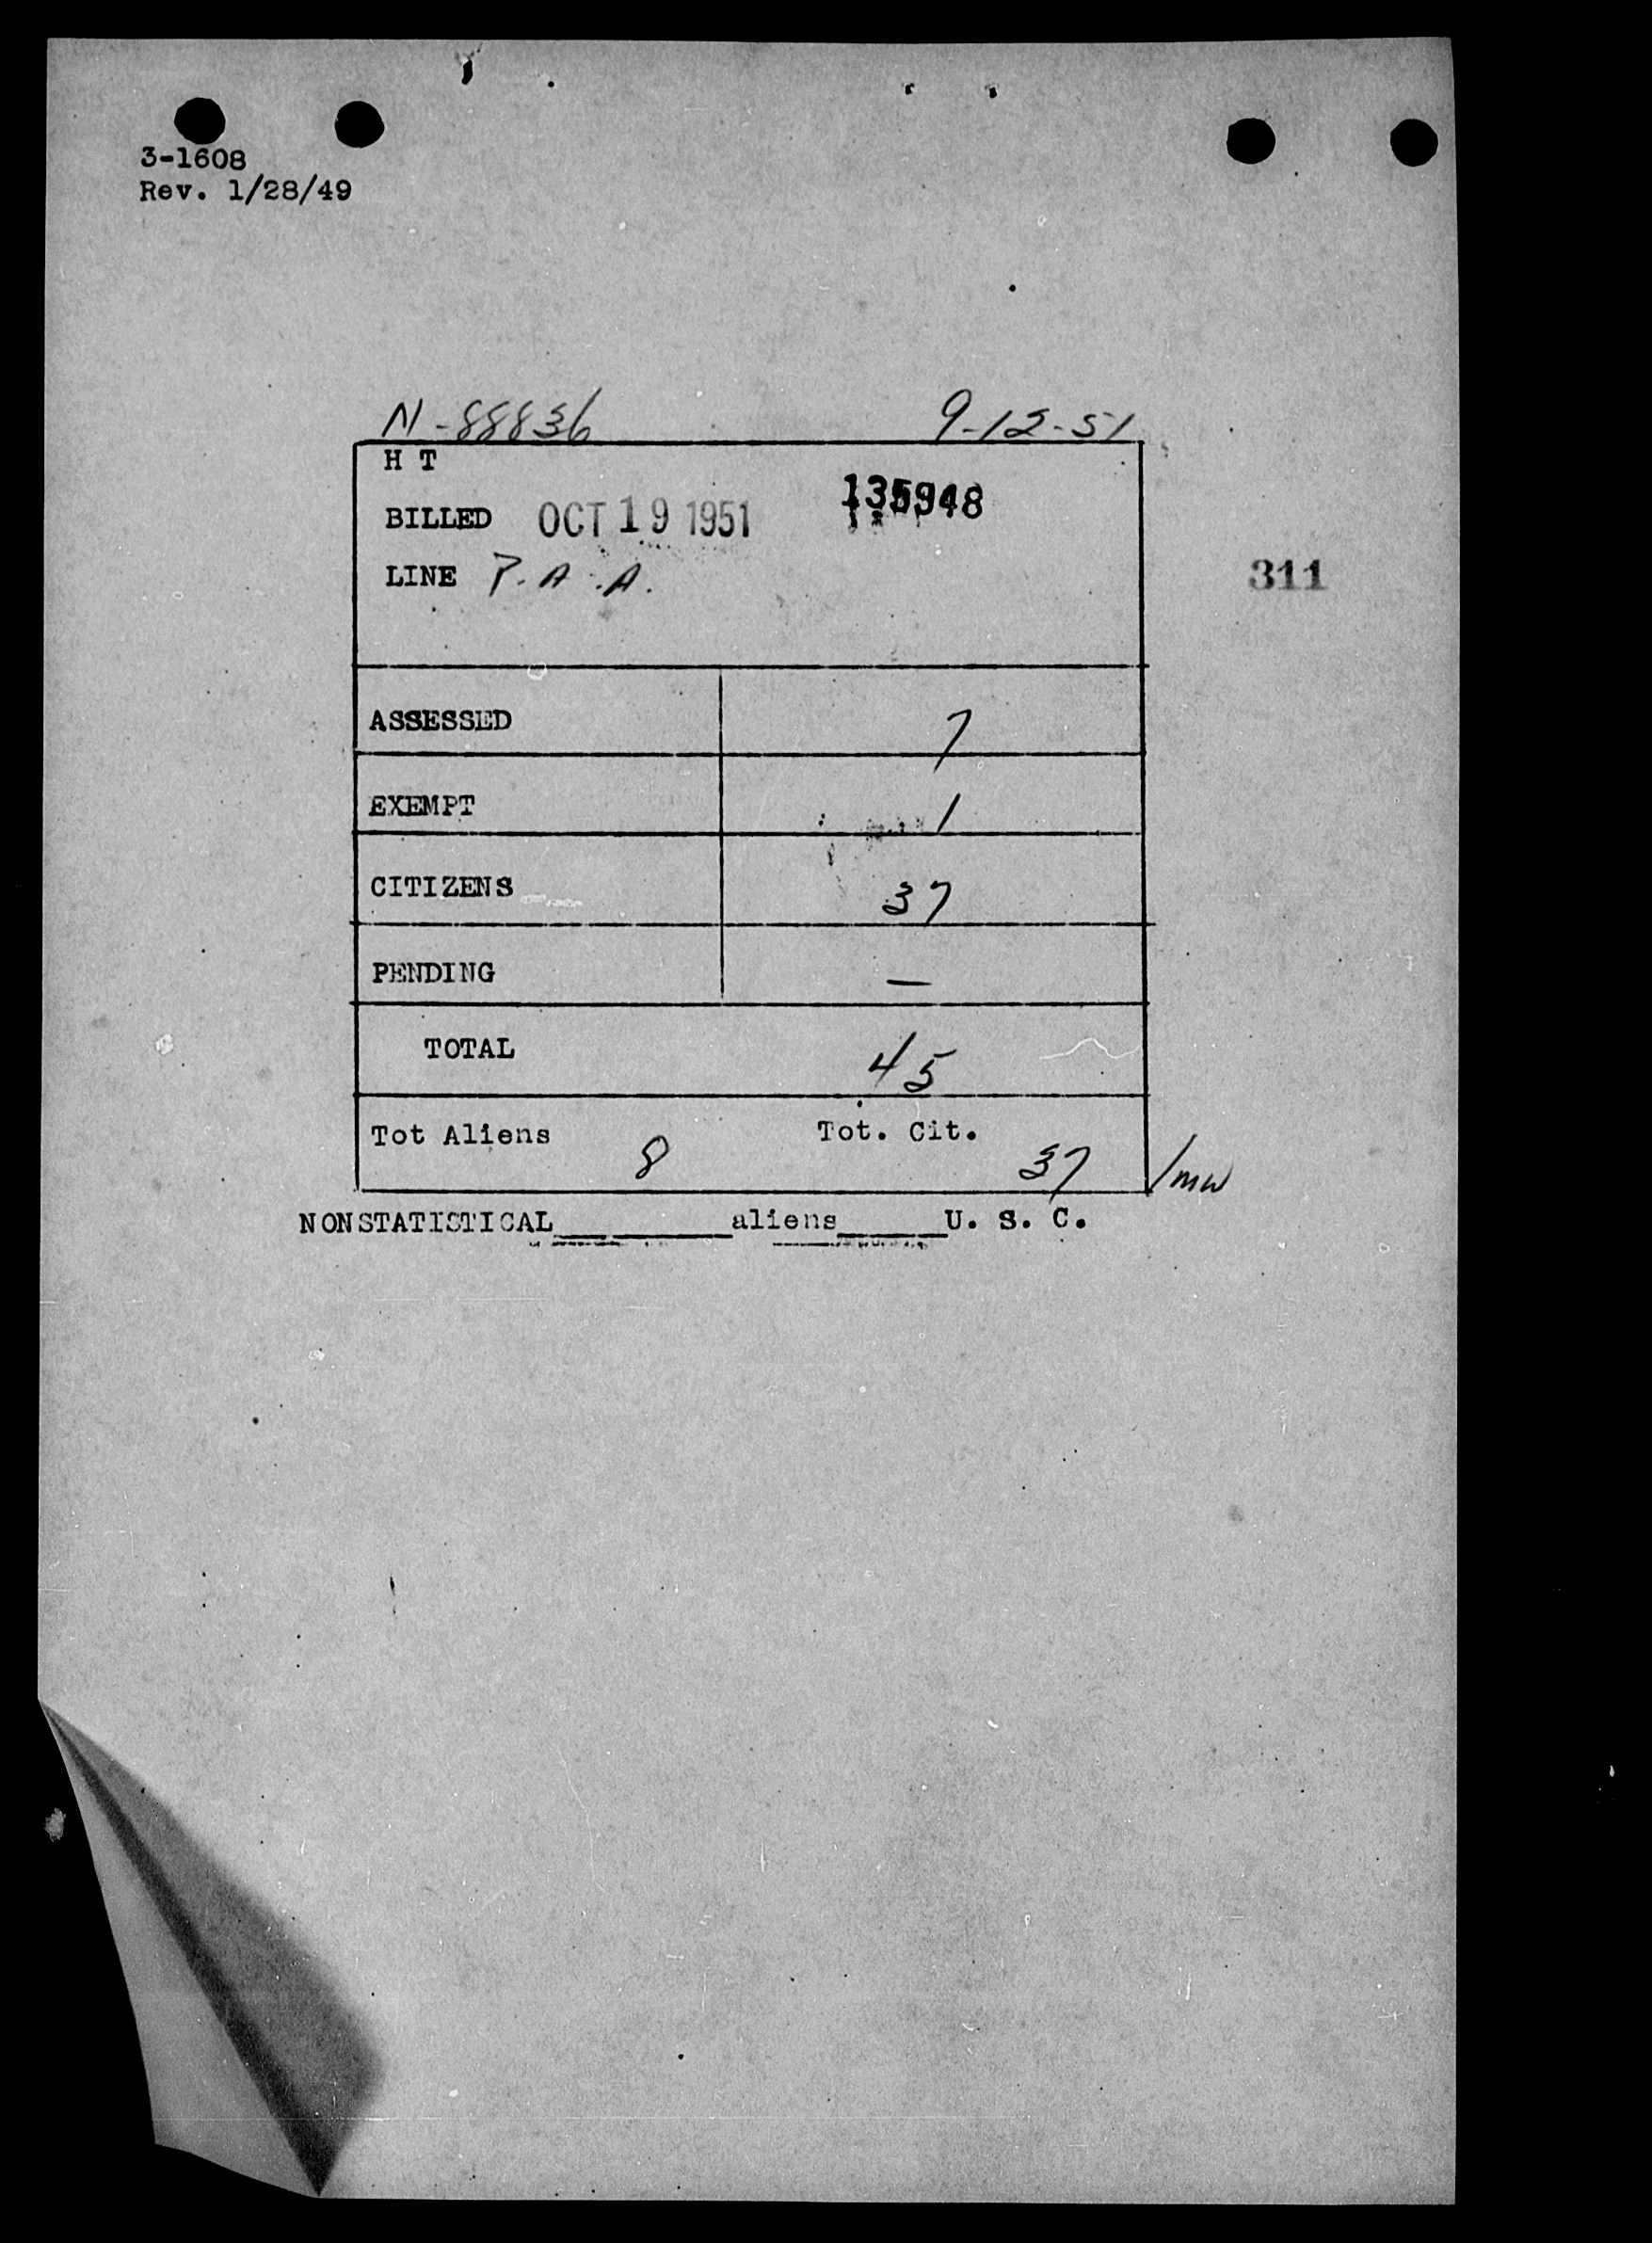 3-1608
Rev. 1/28/49
N-88836 9-12-51
H T
BILLED OCT 19 1951
LINE P.A.A.
311
ASSESSED 7
EXEMPT 1
CITIZENS 37
PENDING —
TOTAL 45
Tot Aliens 8 Tot. Cit. 37 /mw
NONSTATISTICAL__ ______aliens_____U. S. C.